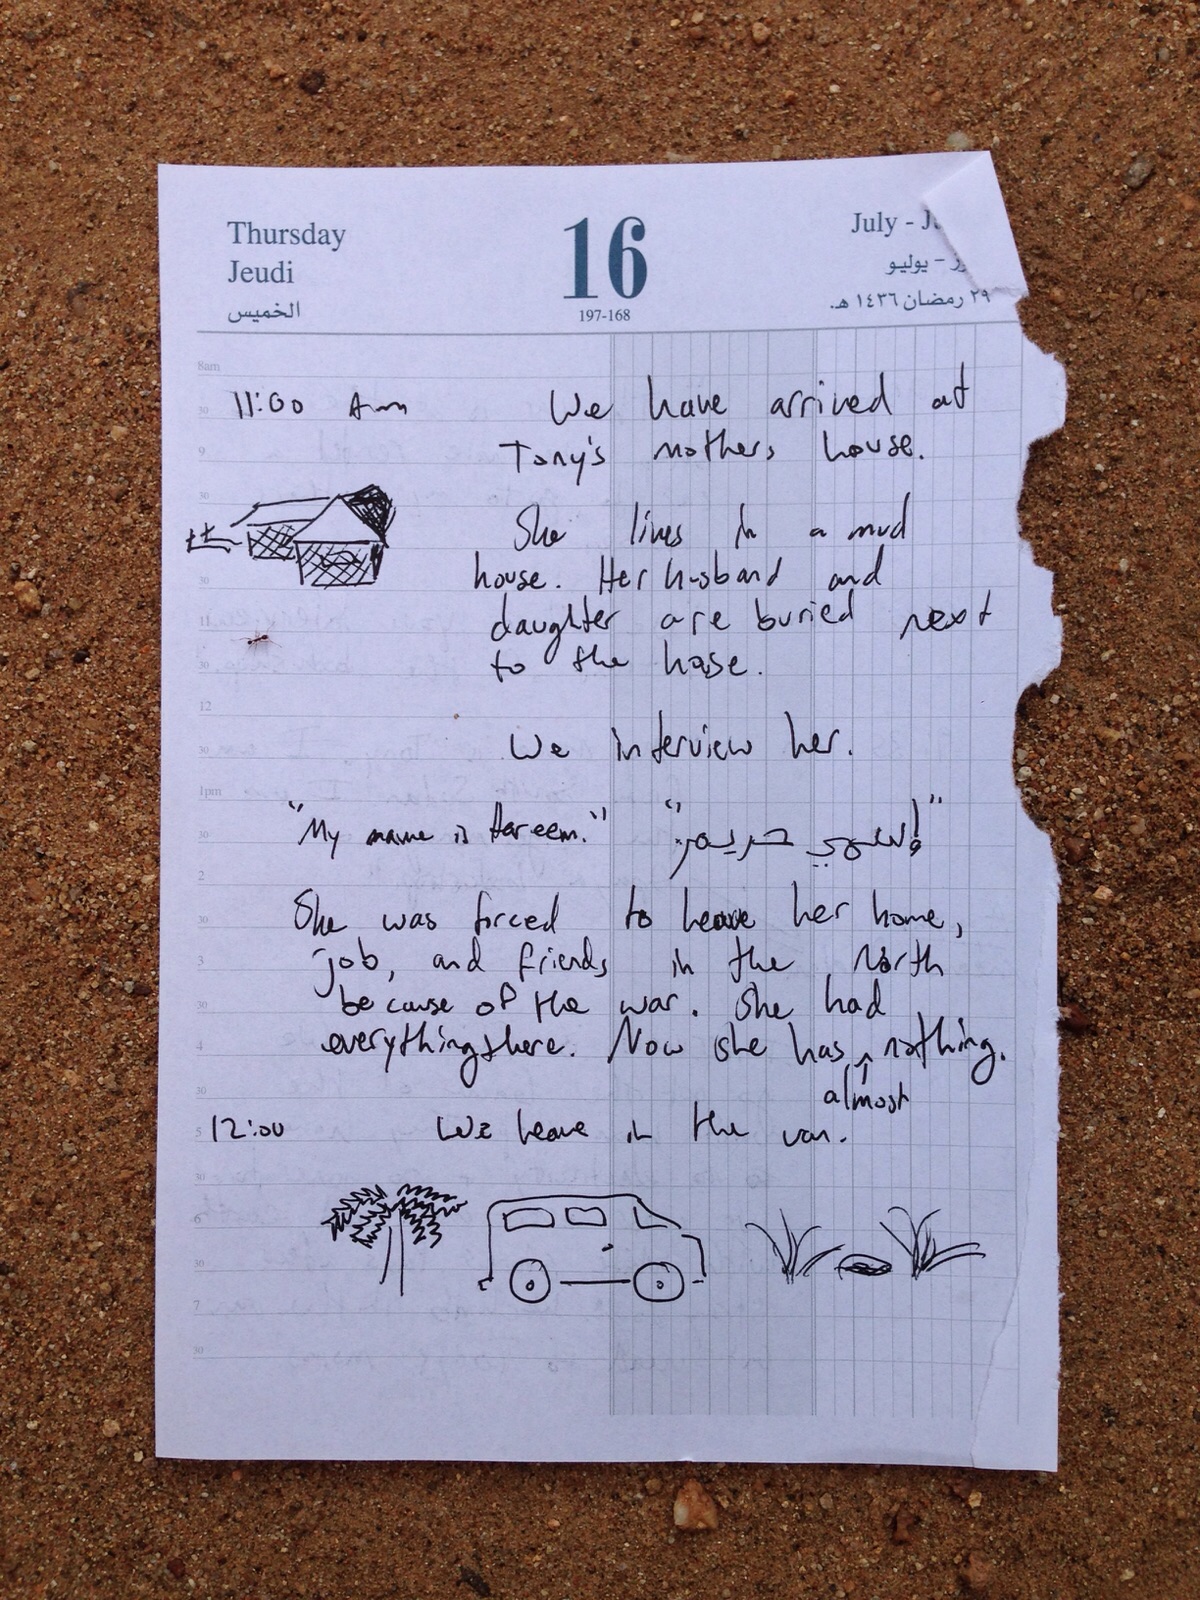 Thursday
Jeudi
الخميس
16
197-168
July -
يوليو -
٢٩ رمضان ١٤٣٦ هـ.
8am
11:00 Am
We have arrived at
30
Tony's mothers house.
9
30
She lives in a mud
house. Her husband and
30
daughter are buried next
11
to the house.
30
12
We interview her.
30
1pm
"My name is Hareem." "إسمي حريم"
30
2
She was forced to leave her home,
30
job, and friends in the North
3
because of the war. She had
30
everything there. Now she has almost nothing.
4
30
12:00 We leave in the van.
5
30
6
30
7
30